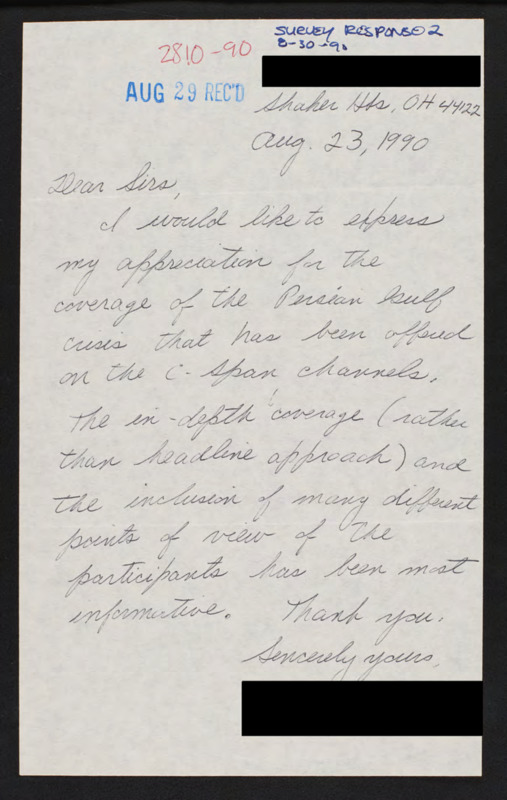 2810-90
SURVEY RESPONSE 2
8-30-90
AUG 29 REC'D
Shaker Hts, OH 44122
Aug. 23, 1990
Dear Sirs,
I would like to express
my appreciation for the
coverage of the Persian Gulf
crisis that has been offered
on the C-Span channels.
The in-depth coverage (rather
than headline approach) and
the inclusion of many different
points of view of the
participants has been most
informative. Thank you.
Sincerely yours,